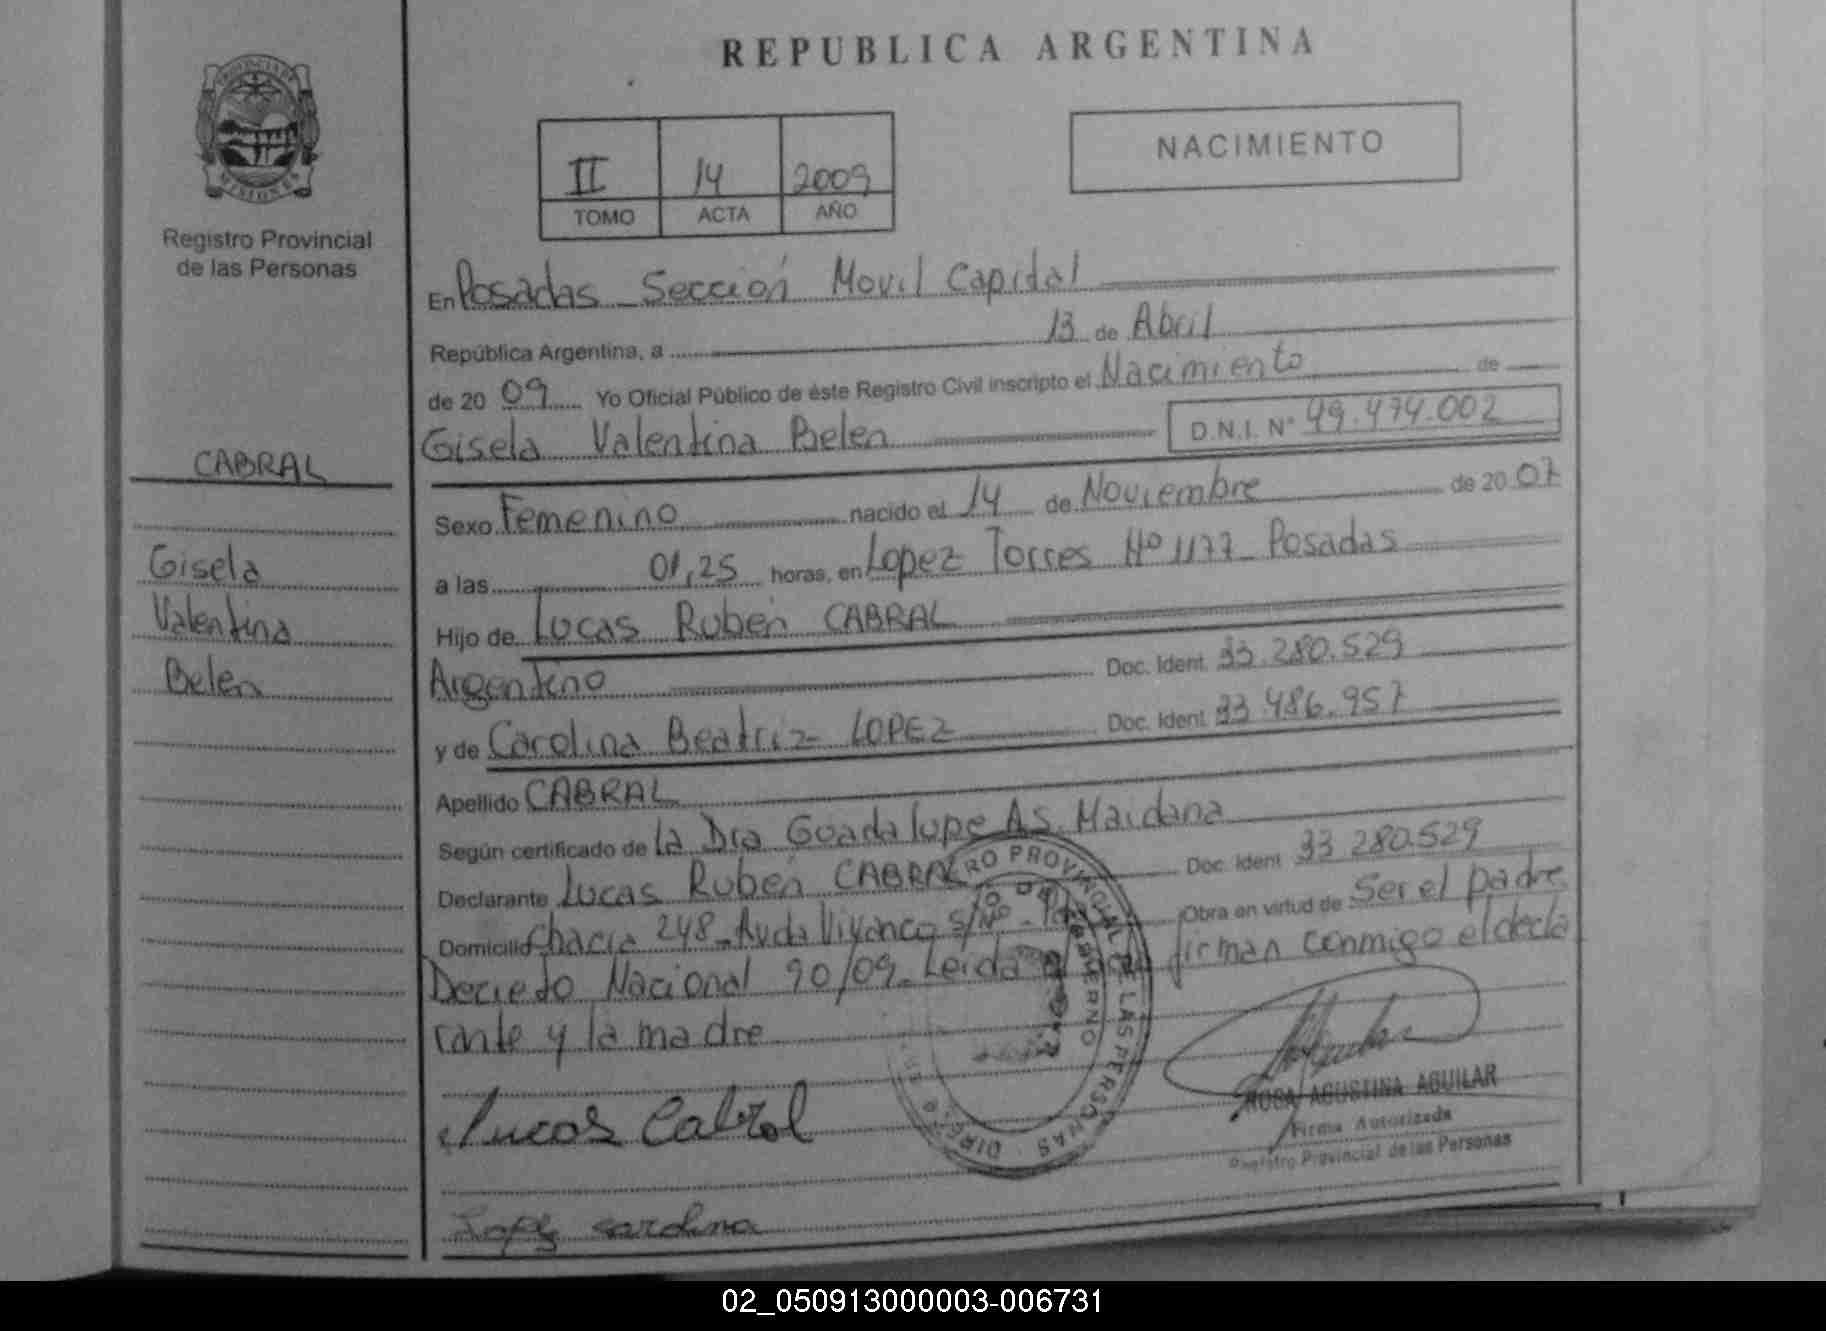 REPUBLICA ARGENTINA
PROVINCIA DE
MISIONES
Registro Provincial
de las Personas
II 14 2009
TOMO ACTA AÑO
NACIMIENTO
En Posadas Sección Movil Capital
República Argentina, a 13 de Abril
de 20 09 Yo Oficial Público de éste Registro Civil inscripto el Nacimiento de
Gisela Valentina Belen D.N.I. Nº 49.474.002
CABRAL
Gisela
Valentina
Belen
Sexo Femenino nacido el 14 de Noviembre de 20 07
a las 01,25 horas, en Lopez Torres Nº 1177 Posadas
Hijo de Lucas Rubén CABRAL
Argentino Doc. Ident. 33.280.529
y de Carolina Beatriz LOPEZ Doc. Ident. 33.486.957
Apellido CABRAL
Según certificado de la Dra Guadalupe As. Maidana
Declarante Lucas Rubén CABRAL Doc. Ident 33 280.529
Domicilio Chacra 248 Avda Vivanco s/Nº Obra en virtud de Ser el padre
Decreto Nacional 90/09 Leida el firman conmigo el decla
rante y la madre
Lucas Cabral
ROSA AGUSTINA AGUILAR
Firma Autorizada
Registro Provincial de las Personas
Lopez carolina
02_050913000003-006731